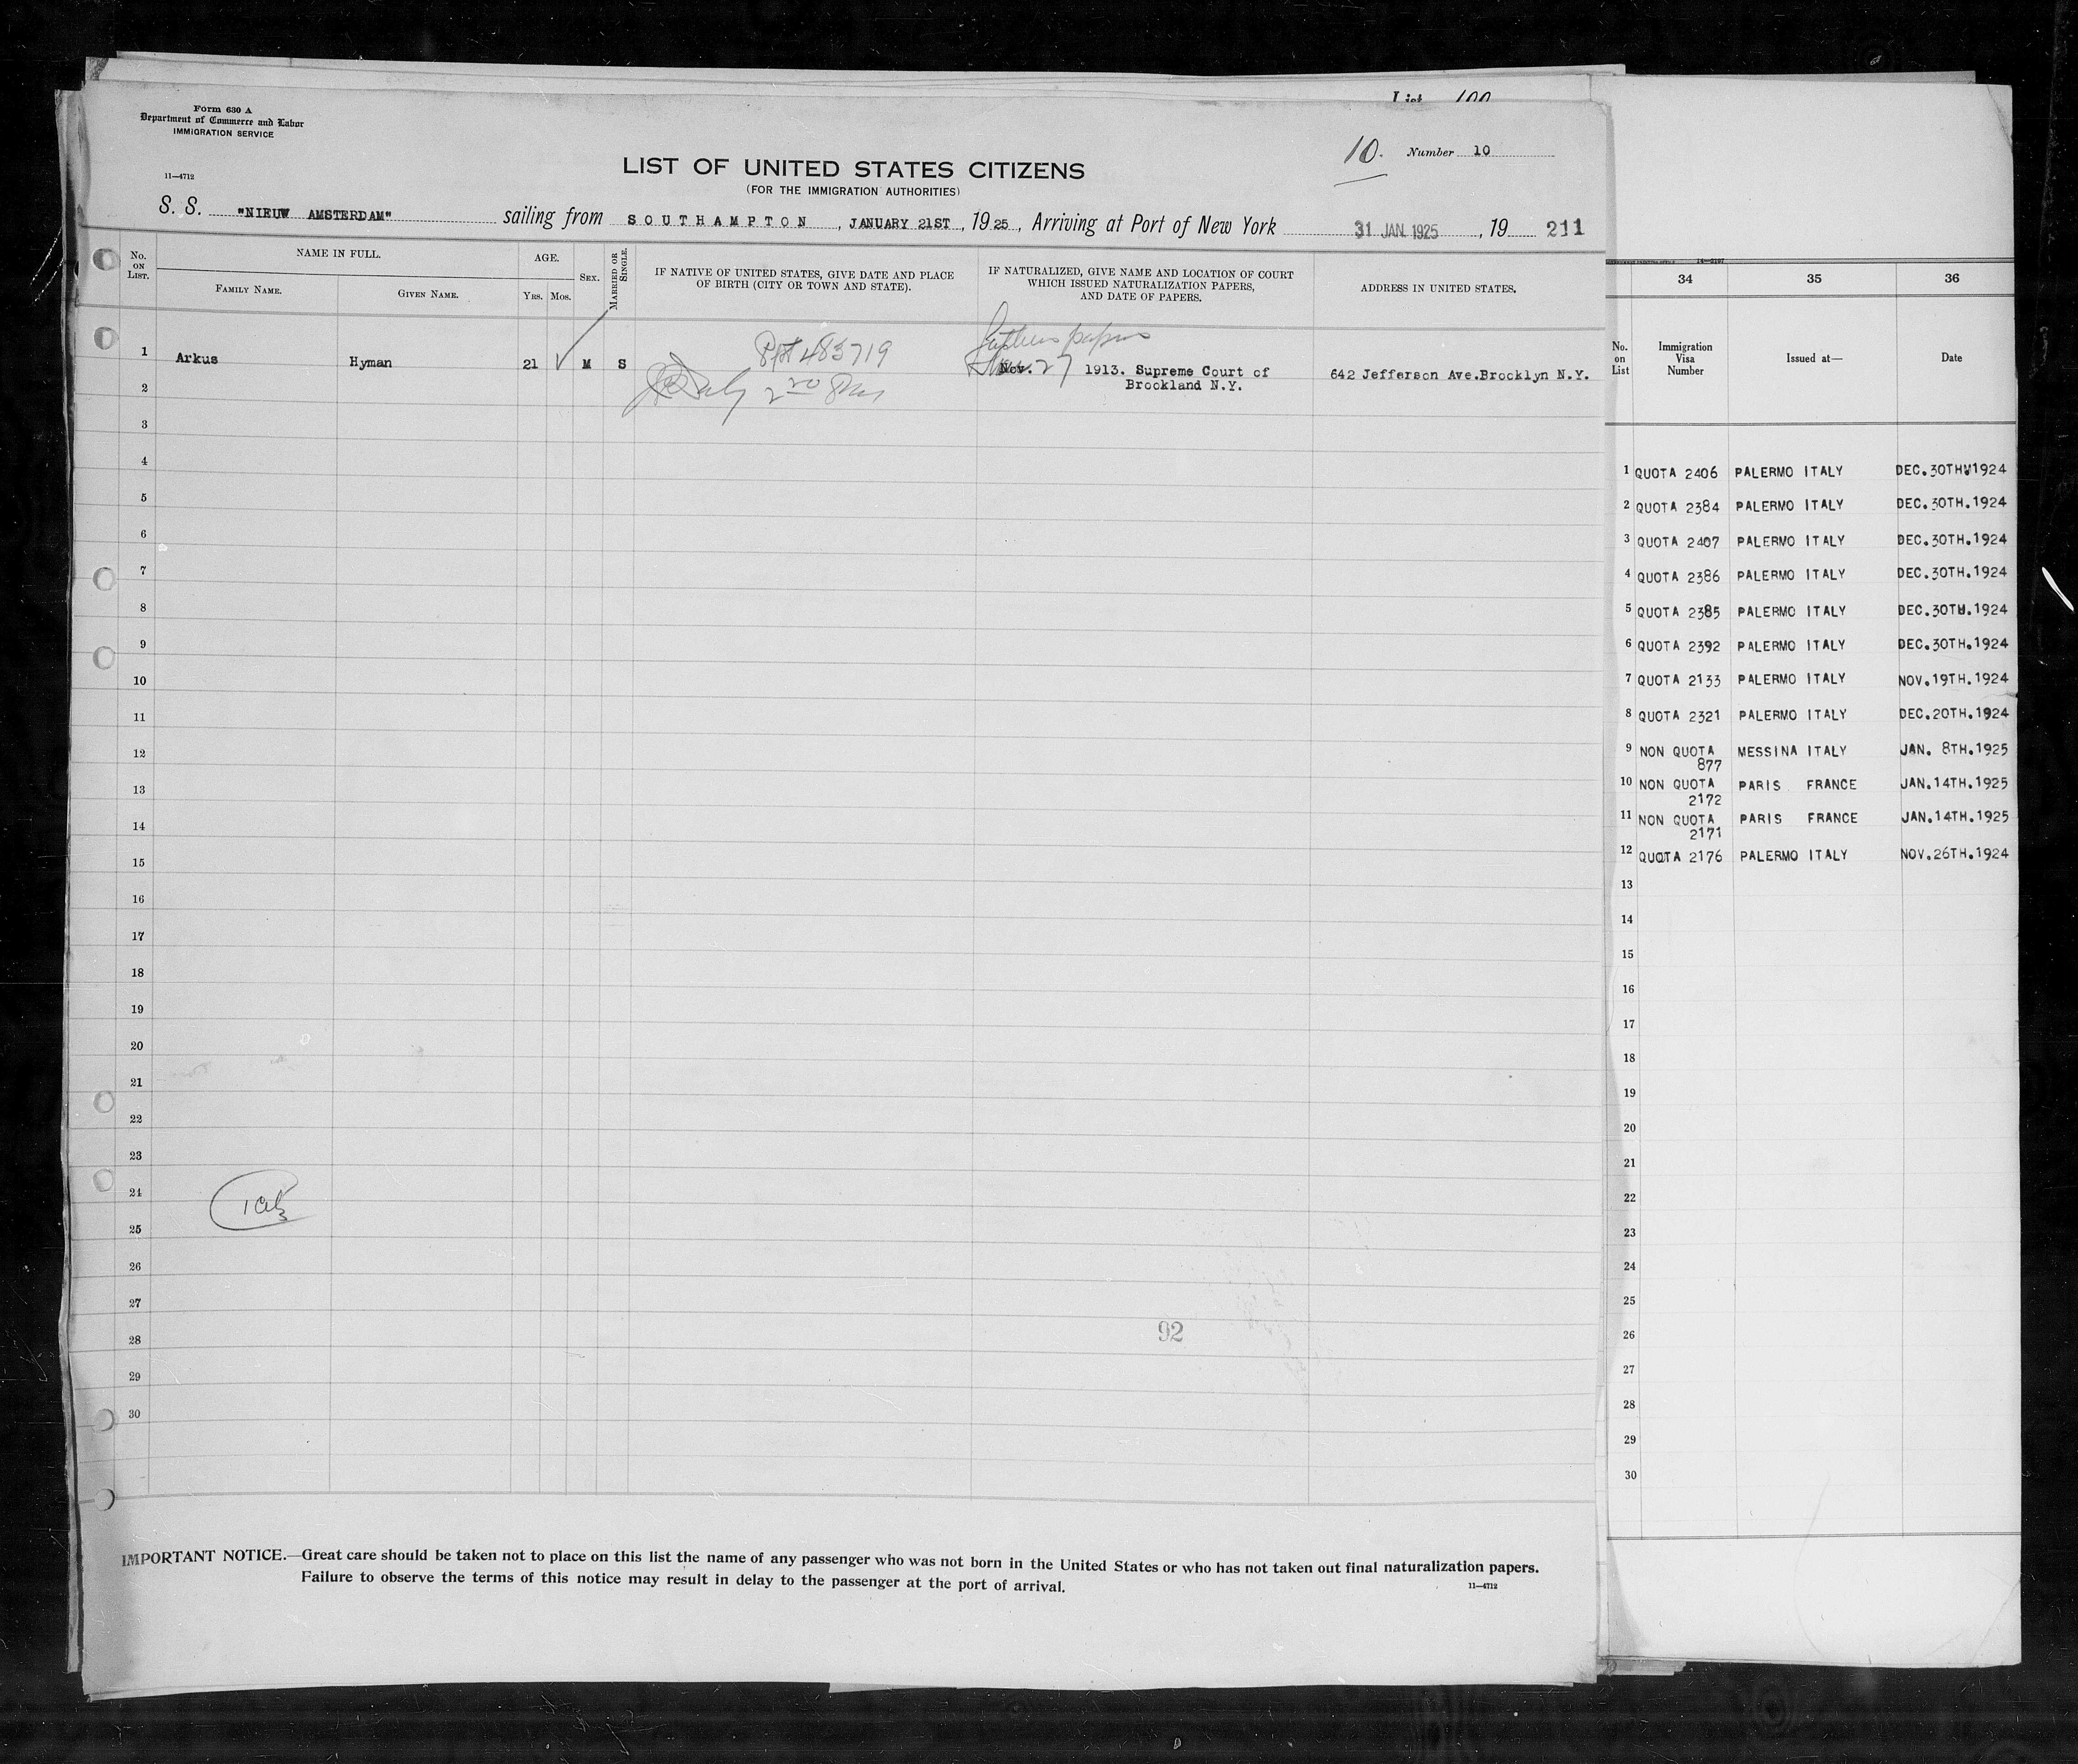 List 100
Form 630 A
Department of Commerce and Labor
IMMIGRATION SERVICE
11—4712
10. Number 10
LIST OF UNITED STATES CITIZENS
(FOR THE IMMIGRATION AUTHORITIES)
S. S. "NIEUW AMSTERDAM" sailing from SOUTHAMPTON, JANUARY 21ST, 1925, Arriving at Port of New York 31 JAN. 1925, 19 211
No. ON LIST.
NAME IN FULL.
FAMILY NAME.
GIVEN NAME.
AGE.
YRS. MOS.
SEX.
MARRIED OR SINGLE.
IF NATIVE OF UNITED STATES, GIVE DATE AND PLACE
OF BIRTH (CITY OR TOWN AND STATE).
IF NATURALIZED, GIVE NAME AND LOCATION OF COURT
WHICH ISSUED NATURALIZATION PAPERS,
AND DATE OF PAPERS.
ADDRESS IN UNITED STATES.
Ppt 485719
papers
1 Arkus Hyman 21 M S Nov. 27 1913. Supreme Court of
Brookland N.Y.
642 Jefferson Ave.Brooklyn N.Y.
2
3
4
5
6
7
8
9
10
11
12
13
14
15
16
17
18
19
20
21
22
23
24
25
26
27
28
29
30
92
IMPORTANT NOTICE.—Great care should be taken not to place on this list the name of any passenger who was not born in the United States or who has not taken out final naturalization papers.
Failure to observe the terms of this notice may result in delay to the passenger at the port of arrival.
11—4712
34 35 36
No. on List
Immigration Visa Number
Issued at—
Date
1 QUOTA 2406 PALERMO ITALY DEC.30TH.1924
2 QUOTA 2384 PALERMO ITALY DEC.30TH.1924
3 QUOTA 2407 PALERMO ITALY DEC.30TH.1924
4 QUOTA 2386 PALERMO ITALY DEC.30TH.1924
5 QUOTA 2385 PALERMO ITALY DEC.30TH.1924
6 QUOTA 2392 PALERMO ITALY DEC.30TH.1924
7 QUOTA 2133 PALERMO ITALY NOV.19TH.1924
8 QUOTA 2321 PALERMO ITALY DEC.20TH.1924
9 NON QUOTA 877 MESSINA ITALY JAN. 8TH.1925
10 NON QUOTA 2172 PARIS FRANCE JAN.14TH.1925
11 NON QUOTA 2171 PARIS FRANCE JAN.14TH.1925
12 QUOTA 2176 PALERMO ITALY NOV.26TH.1924
13
14
15
16
17
18
19
20
21
22
23
24
25
26
27
28
29
30